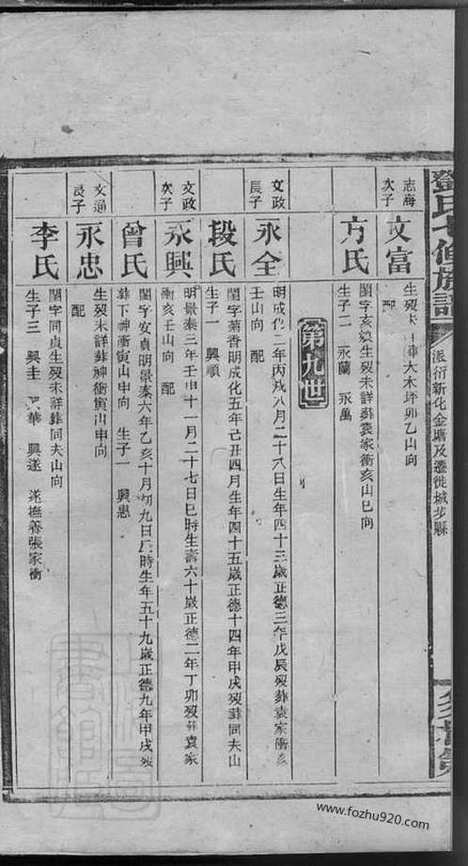 鄧氏七修族譜
派衍新化金塘及遷徙城步縣
志海
次子
文富
生歿未詳葬大木坪卯乙山向
配
方氏
閨字亥娘生歿未詳葬袁家衝亥山巳向
生子二 永蘭 永萬
第九世
文政
長子
永全
明成化二年丙戌八月二十八日生年四十三歲正德三年戊辰歿葬袁家衝亥
壬山向 配
段氏
閨字菊香明成化五年己丑四月生年四十五歲正德十四年甲戌歿葬同夫山
生子一 興順
文政
次子
永興
明景泰三年壬申十一月二十七日巳時生壽六十歲正德二年丁卯歿葬袁家
衝亥壬山向 配
曾氏
閨字安貞明景泰六年乙亥十月初九日辰時生年五十九歲正德九年甲戌歿
葬下神衝寅山申向 生子一 興惠
文通
長子
永忠
生歿未詳葬神衝寅山申向
配
李氏
閨字同貞生歿未詳葬同夫山向
生子三 興圭 興華 興遂 遂撫善張家衝
www.fozhu920.com